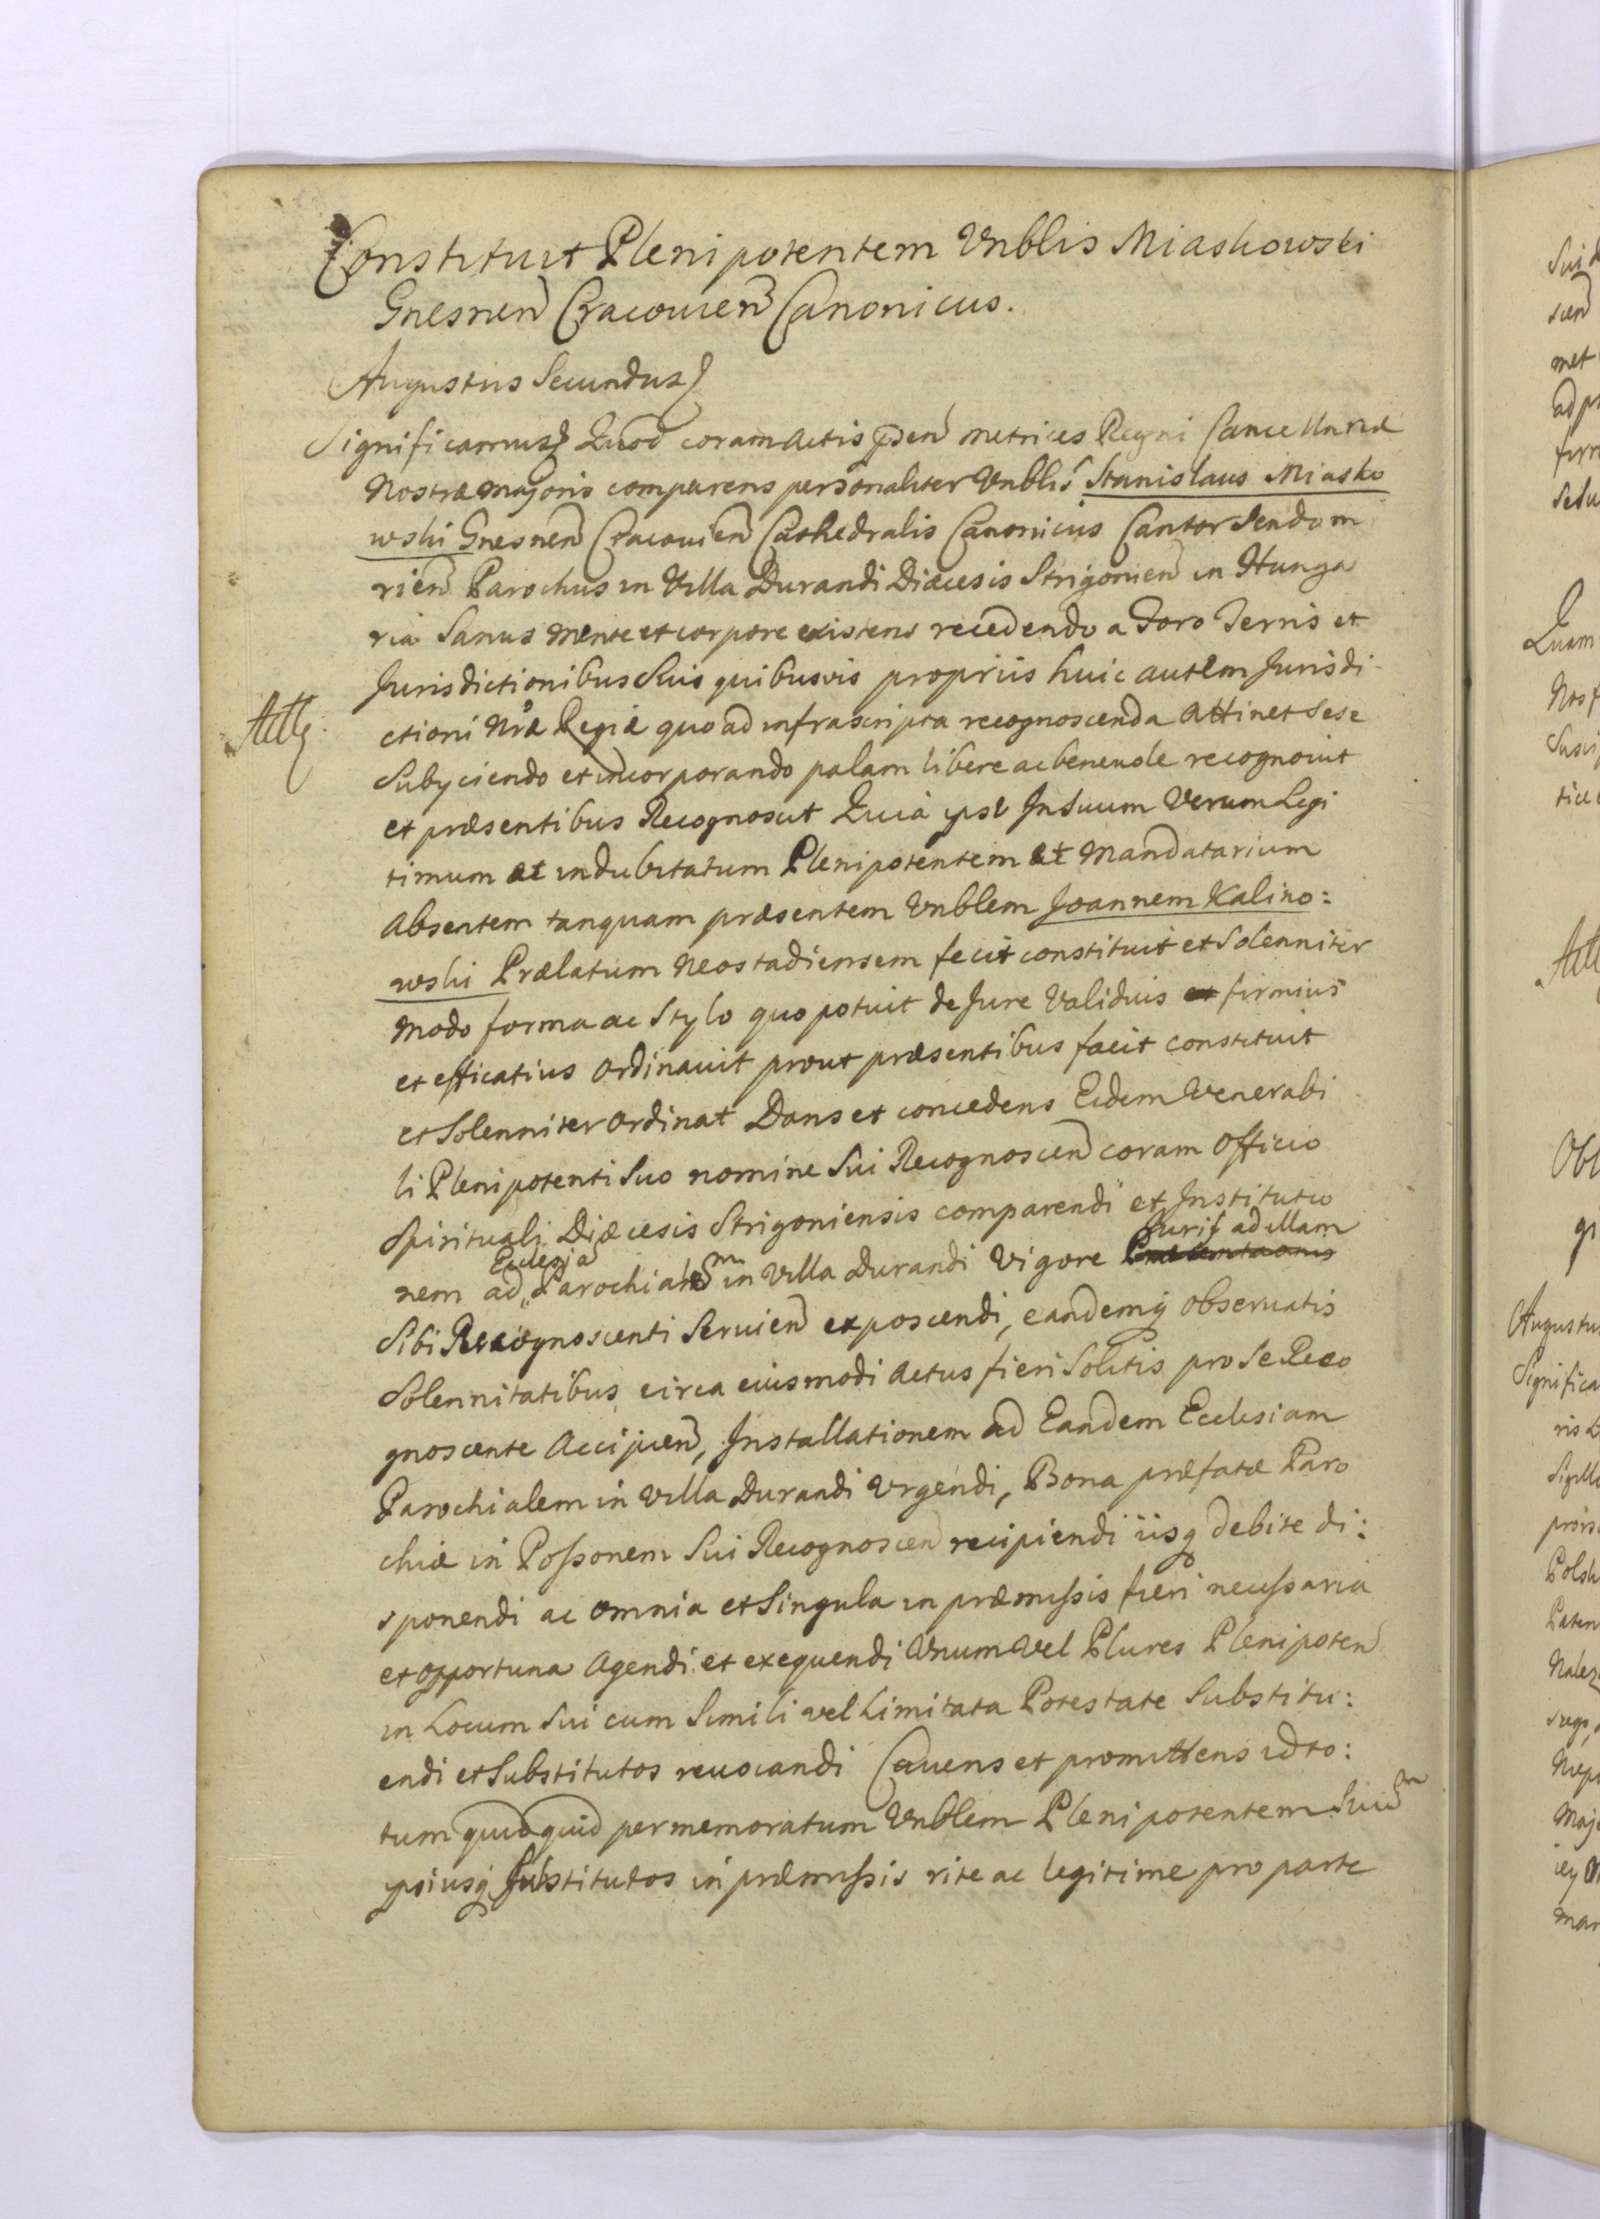 Constituit Plenipotentem Vnblis Miaskowski
Gnesnen Cracovien Canonicus.
Augustus Secundus
Significamus Quod coram Actis pden metrices Regni Cancellariæ
Nostræ majoris comparens personaliter Vnblis Stanislaus Miasko
wski Gnesnen Cracouien Cathedralis Canonicus Cantor Sendom
rien Parochus in Villa Durandi Diæcesis Strigonien in Hunga
ria Sanus mente et corpore existens recedendo a Foro Terris et
Jurisdictionibus Suis quibusvis proprius huic autem Jurisdi
Actg
ctioni Nræ Regiæ quo ad infrascripta recognoscenda Attinet sese
Subyciendo et incorporando palam libere ac beneuole recognouit
et præsentibus Recognoscit Quia ipse In Suum Verum Legi
timum at indubitatum Plenipotentem et Mandatarium
Absentem tanquam præsentem Vnblem Joannem Kalino:
wski Prælatum Neostadiensem fecit constituit et Solenniter
Modo forma ac Stylo quo potuit de Jure Validius et firmius
et efficatius Ordinauit prout præsentibus facit constituit
et Solenniter Ordinat Dans et concedens Eidem Venerabi
li Plenipotenti Suo nomine Sui Recognoscen coram Officio
Spirituali Diæcesis Strigoniensis comparendi et Institutio
nem ad Ecclesia Parochialem in Villa Durandi Vigore Juris ad illam
Sibi Recognoscenti Seruien exposcendi, eandemq Obseruatis
Solennitatibus circa eiusmodi Actus fieri Solitis pro Se Reco
gnoscente Accipien, Installationem ad Eandem Ecclesiam
Parochialem in Villa Durandi Vrgendi, Bona præfatæ Paro
chiæ in Possonem Sui Recognoscen recipiendi iisq debite di:
sponendi ac omnia et Singula in præmissis fieri necessaria
et opportuna Agendi et exequendi Vnum Vel Plures Plenipoten
in Locum Sui cum Simili vel Limitata Potestate Substitu:
endi et Substitutos reuocandi Cauens et promittens id to:
tum quidquid per memoratum Vnblem Plenipotentem Suum
ipsiusq Substitutos in præmissis rite ac legitime pro parte